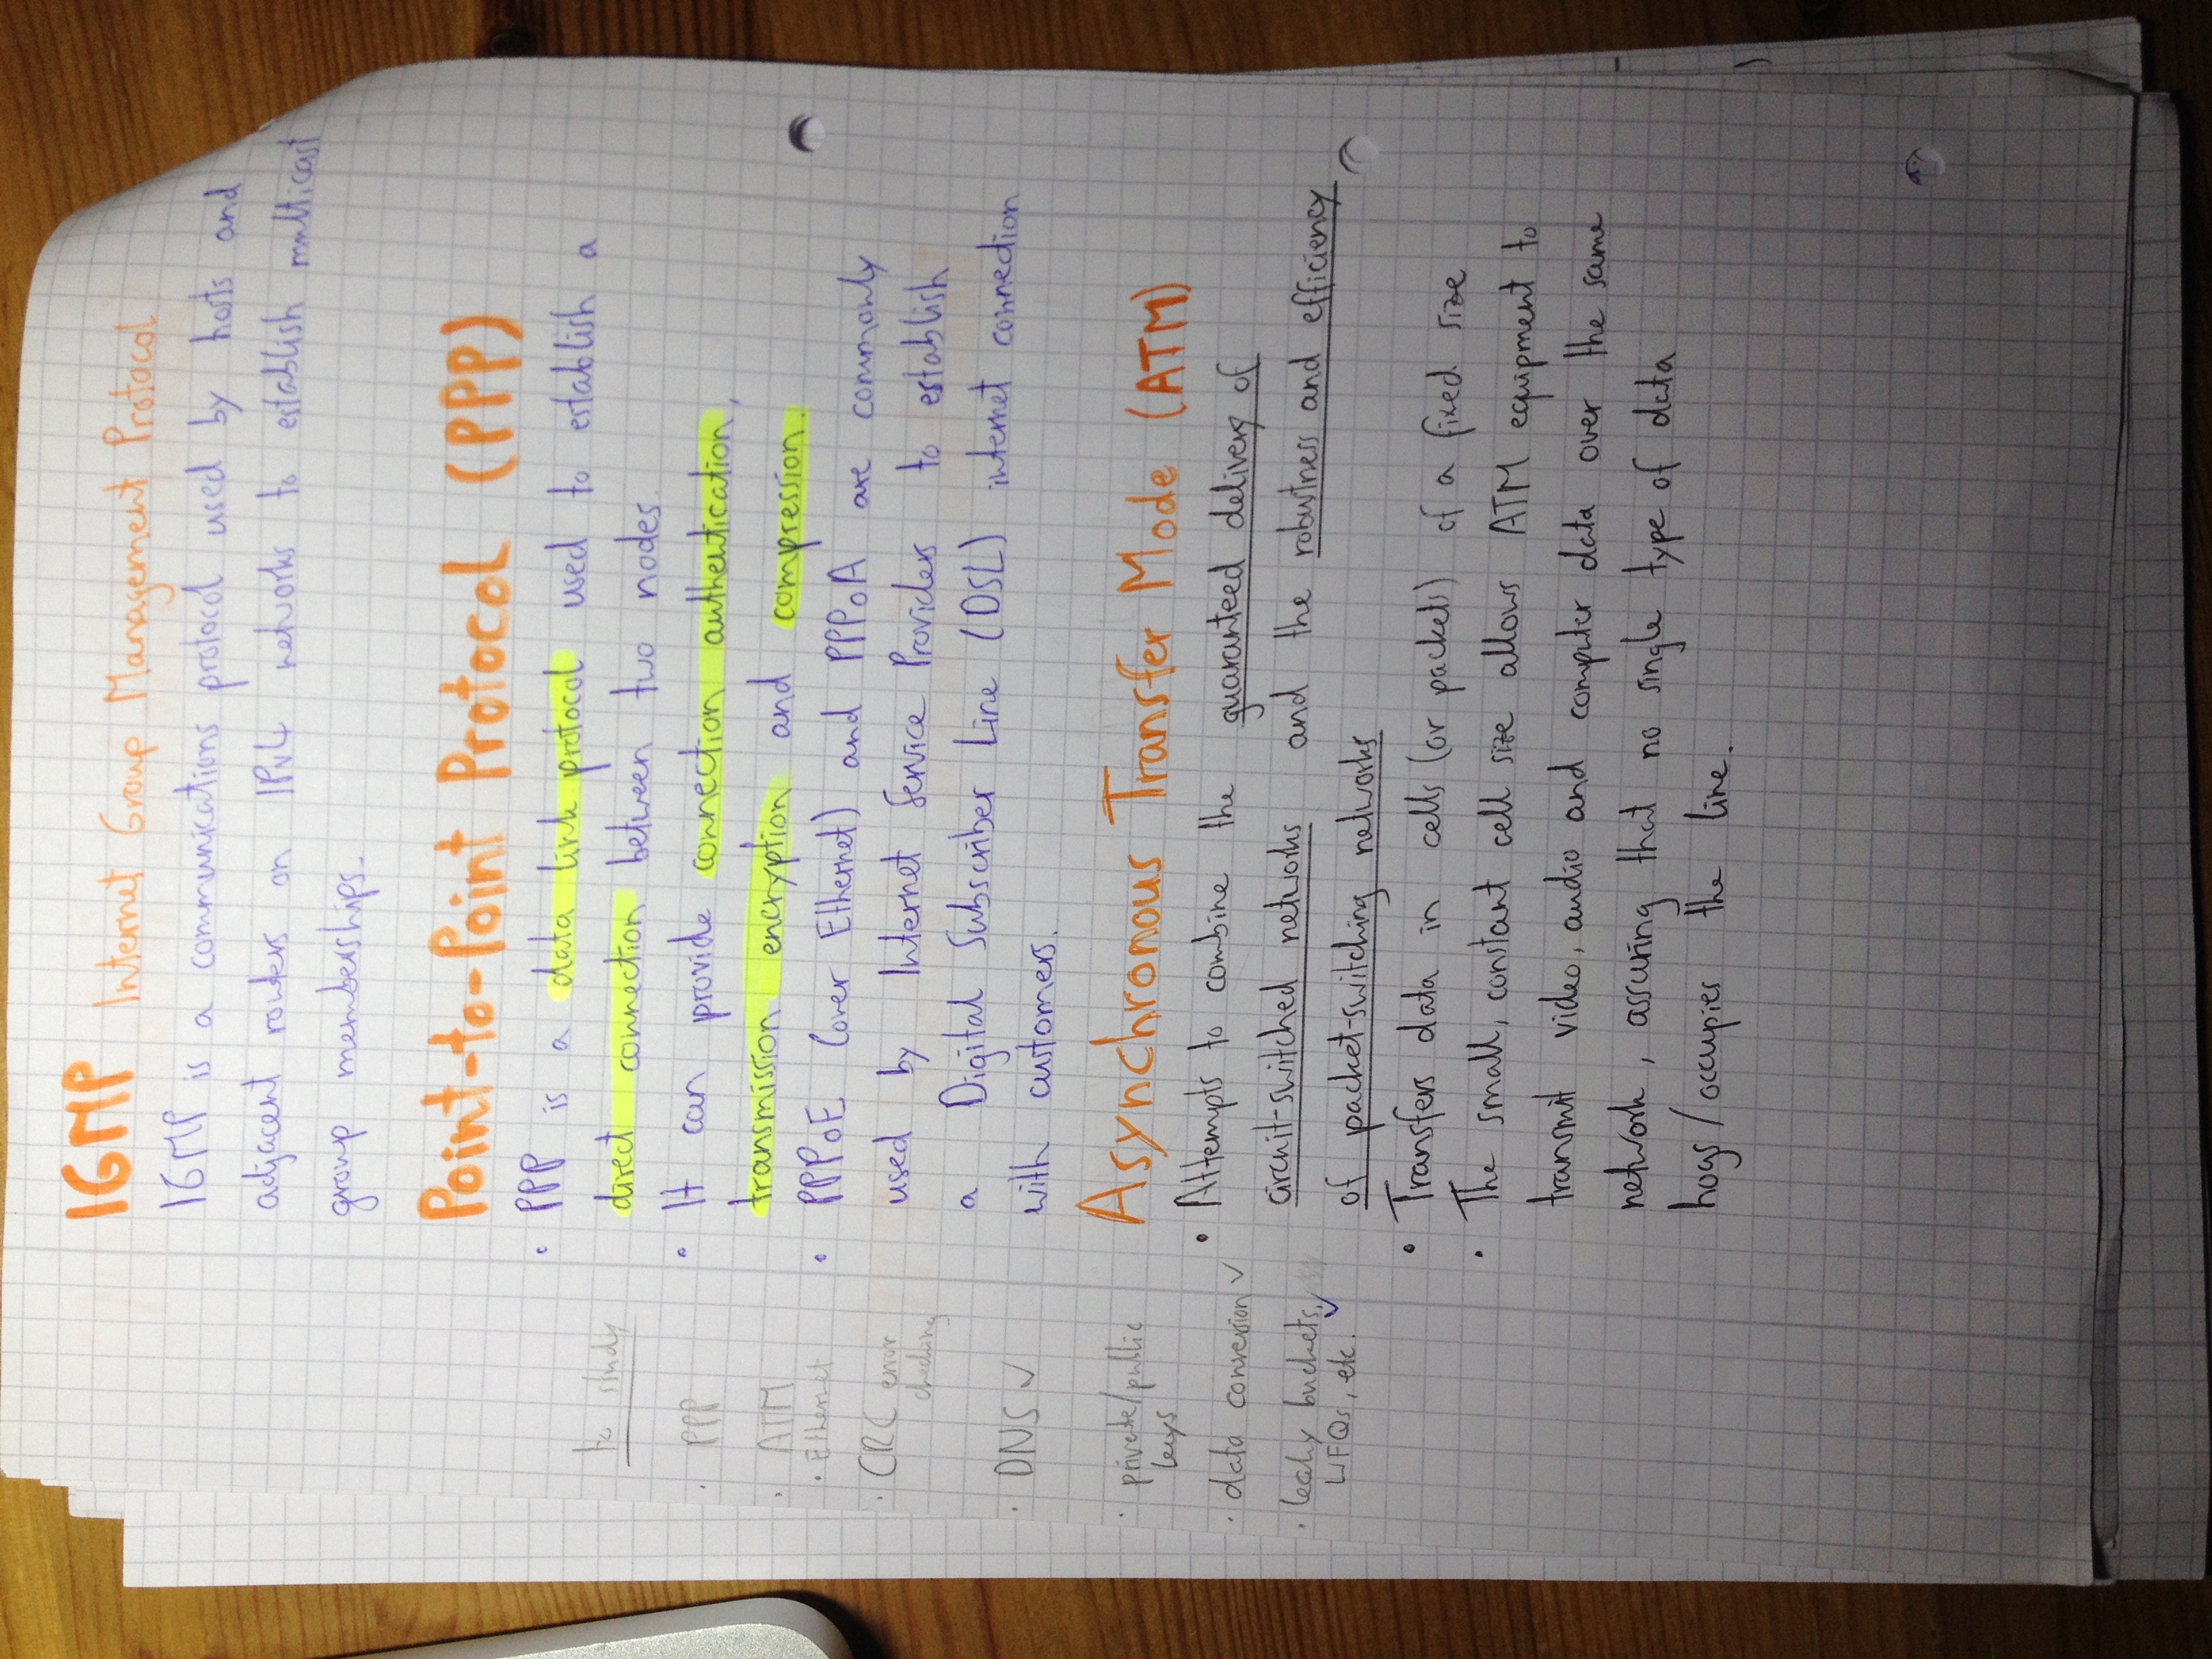 IGMP Internet Group Management Protocol
IGMP is a communications protocol used by hosts and
adjacent routers on IPv4 networks to establish multicast
group memberships.
Point-to-Point Protocol (PPP)
• PPP is a data link protocol used to establish a
direct connection between two nodes.
• It can provide connection authentication,
transmission encryption and compression.
• PPPoE (over Ethernet) and PPPoA are commonly
used by Internet Service Providers to establish
a Digital Subscriber Line (DSL) internet connection
with customers.
Asynchronous Transfer Mode (ATM)
• Attempts to combine the guaranteed delivery of
circuit-switched networks and the robustness and efficiency
of packet-switching networks
• Transfers data in cells (or packets) of a fixed size
• The small, constant cell size allows ATM equipment to
transmit video, audio and computer data over the same
network, assuring that no single type of data
hogs/occupies the line.
to study
· PPP
· ATM
· Ethernet
· CRC error
checking
· DNS ✓
· private/public
keys
· data conversion ✓
· leaky buckets, ✓
WFQs, etc. ✓